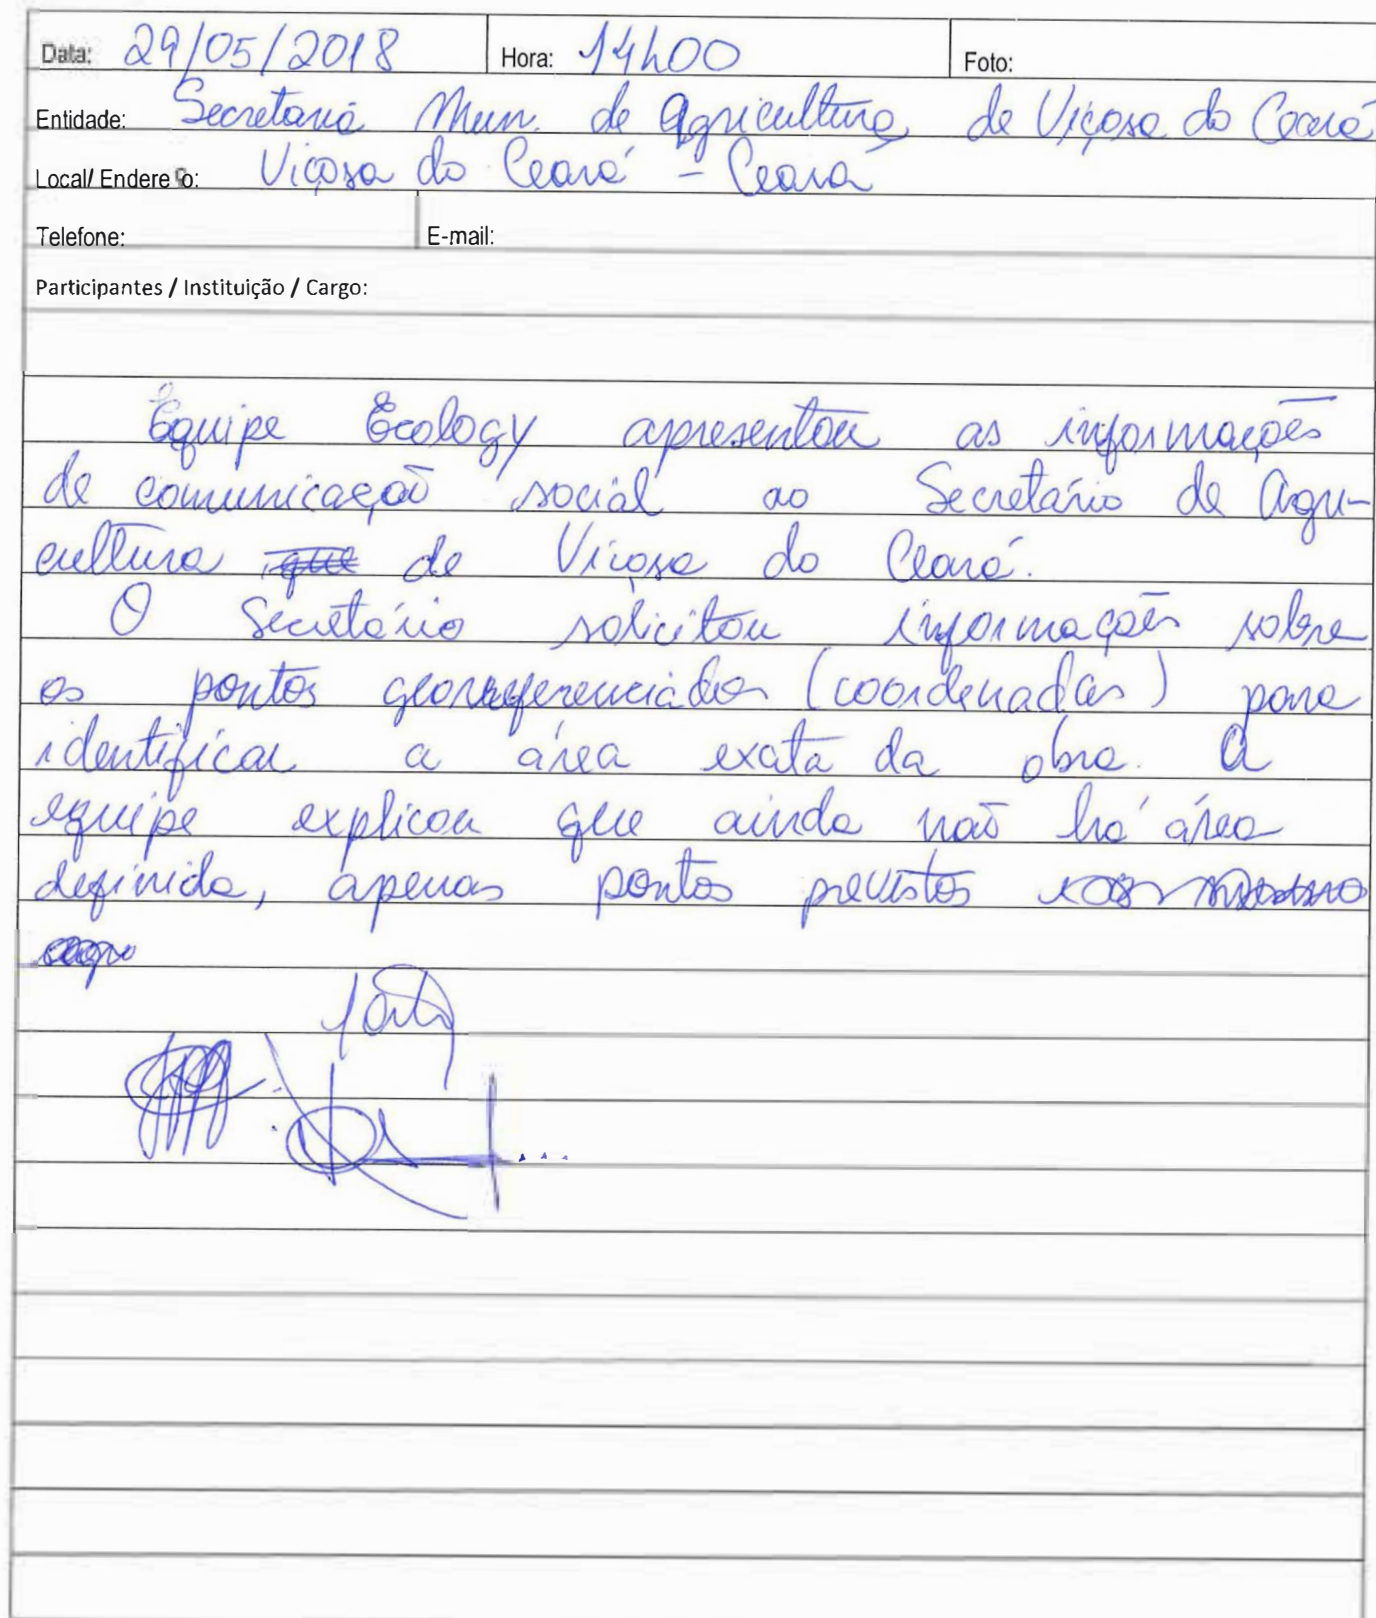 Data: 29/05/2018 Hora: 14h00 Foto:
Entidade: Secretaria Mun. de Agricultura de Viçosa do Ceará
Local/ Endereço: Viçosa do Ceará - Ceará
Telefone: E-mail:
Participantes / Instituição / Cargo:
Equipe Ecology apresentou as informações
de comunicação social ao Secretário de Agri-
cultura que de Viçosa do Ceará.
O Secretário solicitou informações sobre
os pontos georreferenciados (coordenadas) para
identificar a área exata da obra. A
equipe explicou que ainda não há área
definida, apenas pontos previstos